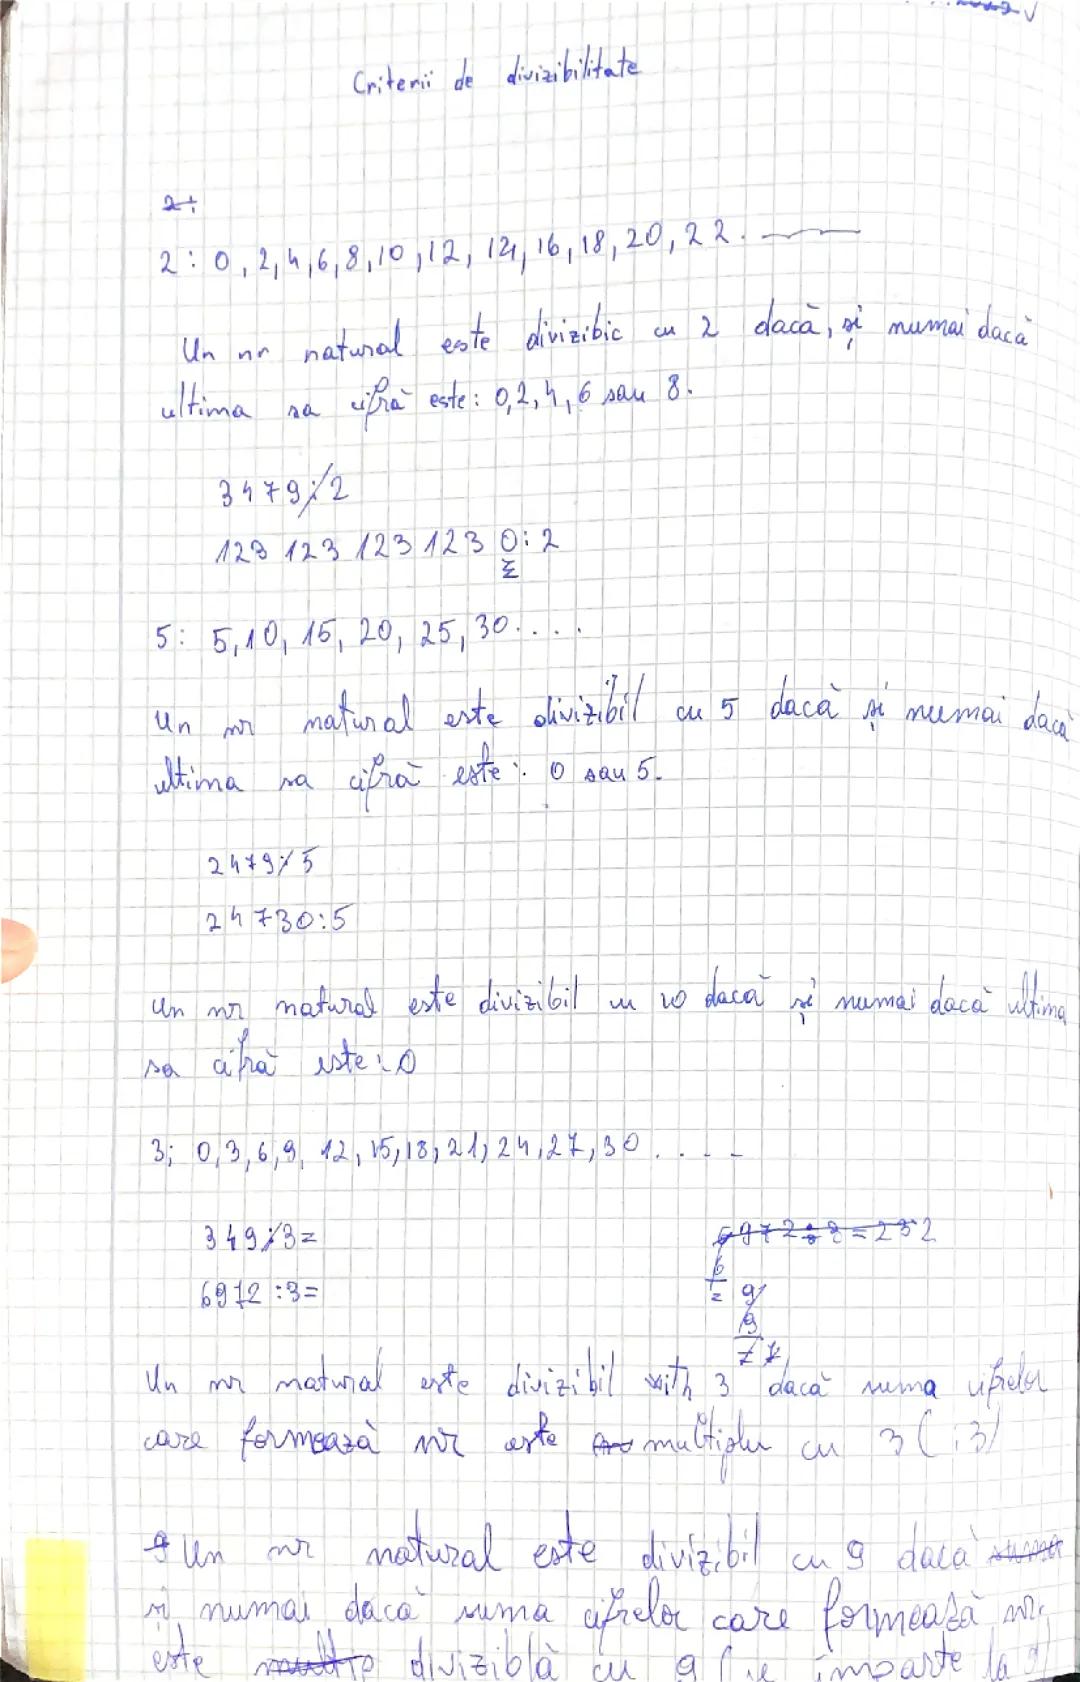 Criterii de divizibilitate
2:
2: 0, 2, 4, 6, 8, 10, 12, 14, 16, 18, 20, 22.
Un nr natural este divizibic cu 2 dacă, și numai dacă
ultima sa cifră este: 0, 2, 4, 6 sau 8.
3479⋮̸2
123 123 123 123 0⋮2
5: 5, 10, 15, 20, 25, 30....
Un nr natural este divizibil cu 5 dacă și numai dacă
ultima sa cifră este: 0 sau 5.
2479⋮̸5
24730⋮5
Un nr natural este divizibil cu 10 dacă și numai dacă ultima
sa cifră este: 0
3; 0, 3, 6, 9, 12, 15, 18, 21, 24, 27, 30....
349⋮̸3=
6972:3=
6972:3=232
6
= 9
9
Un nr natural este divizibil with 3 dacă suma cifrelor
care formează nr este multiplu cu 3 (⋮3)
9 Un nr natural este divizibil cu 9 dacă suma
și numai dacă suma cifrelor care formează nr.
este multip diviziblă cu 9 (se împarte la 9)